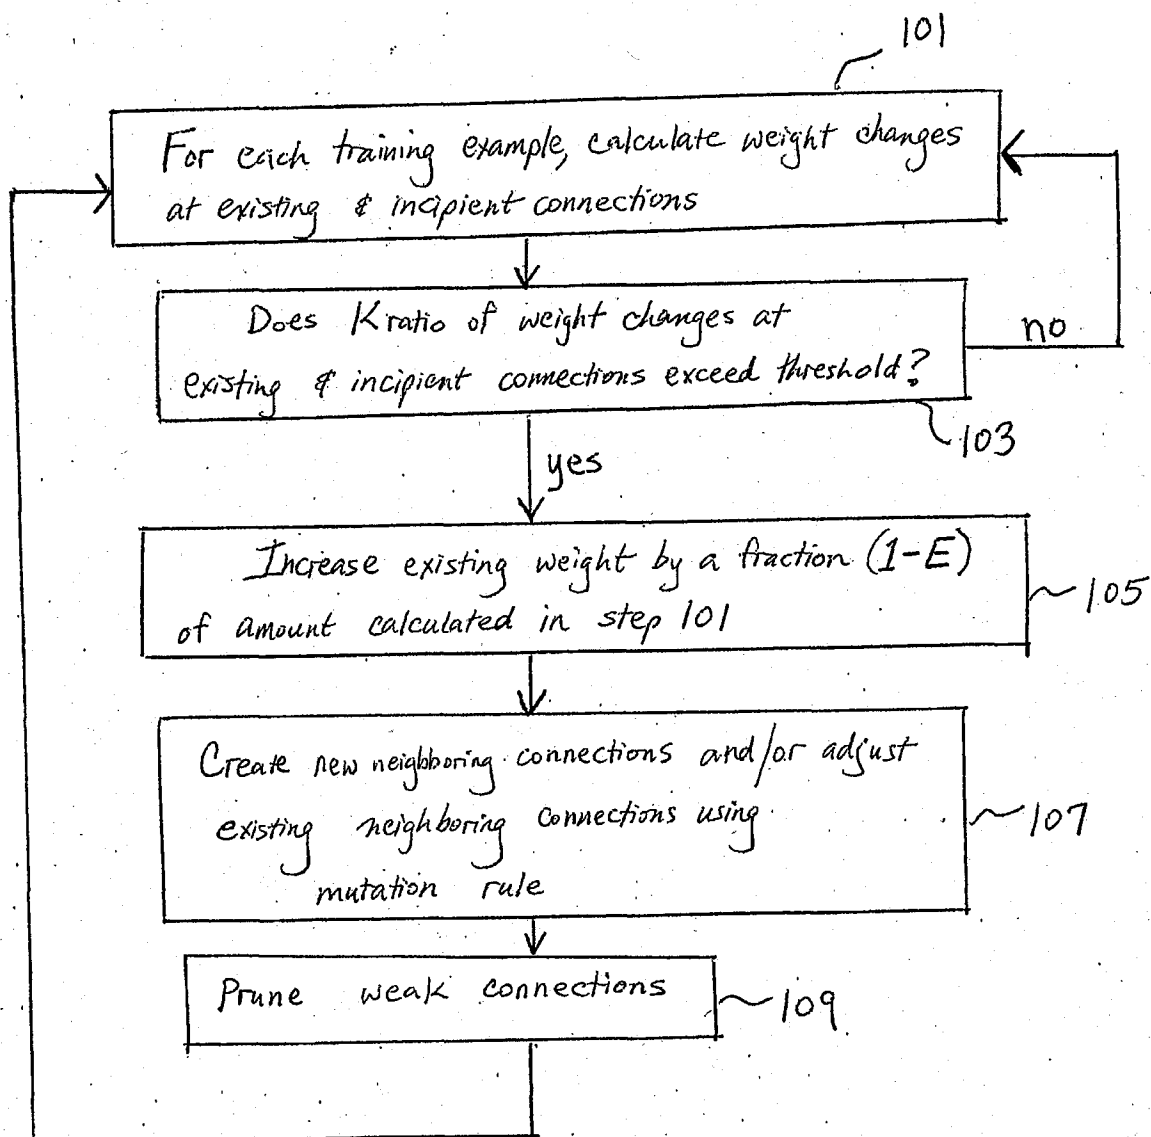 101
For each training example, calculate weight changes
at existing & incipient connections
Does K ratio of weight changes at
existing & incipient connections exceed threshold?
no
103
yes
Increase existing weight by a fraction (1-E)
of amount calculated in step 101
105
Create new neighboring connections and/or adjust
existing neighboring connections using
mutation rule
107
Prune weak connections
109